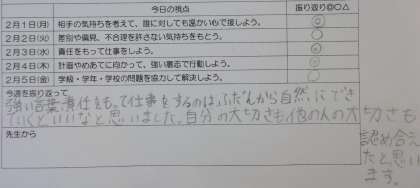 今日の視点 振り返り◎○△
2月1日(月) 相手の気持ちを考えて、誰に対しても温かい心で接しよう。 ◎
2月2日(火) 差別や偏見、不合理を許さない気持ちをもとう。 ○
2月3日(水) 責任をもって仕事をしよう。 ◎
2月4日(木) 計画やめあてに向かって、強い意志で行動しよう。 ○
2月5日(金) 学級・学年・学校の問題を協力して解決しよう。 ○
今週を振り返って
強い言葉責任をもって仕事をするのは、ふだんから自然にでき
ていくといいなと思いました。自分の大切さも他の人の大切さも
認め合え
たと思い
ます。
先生から